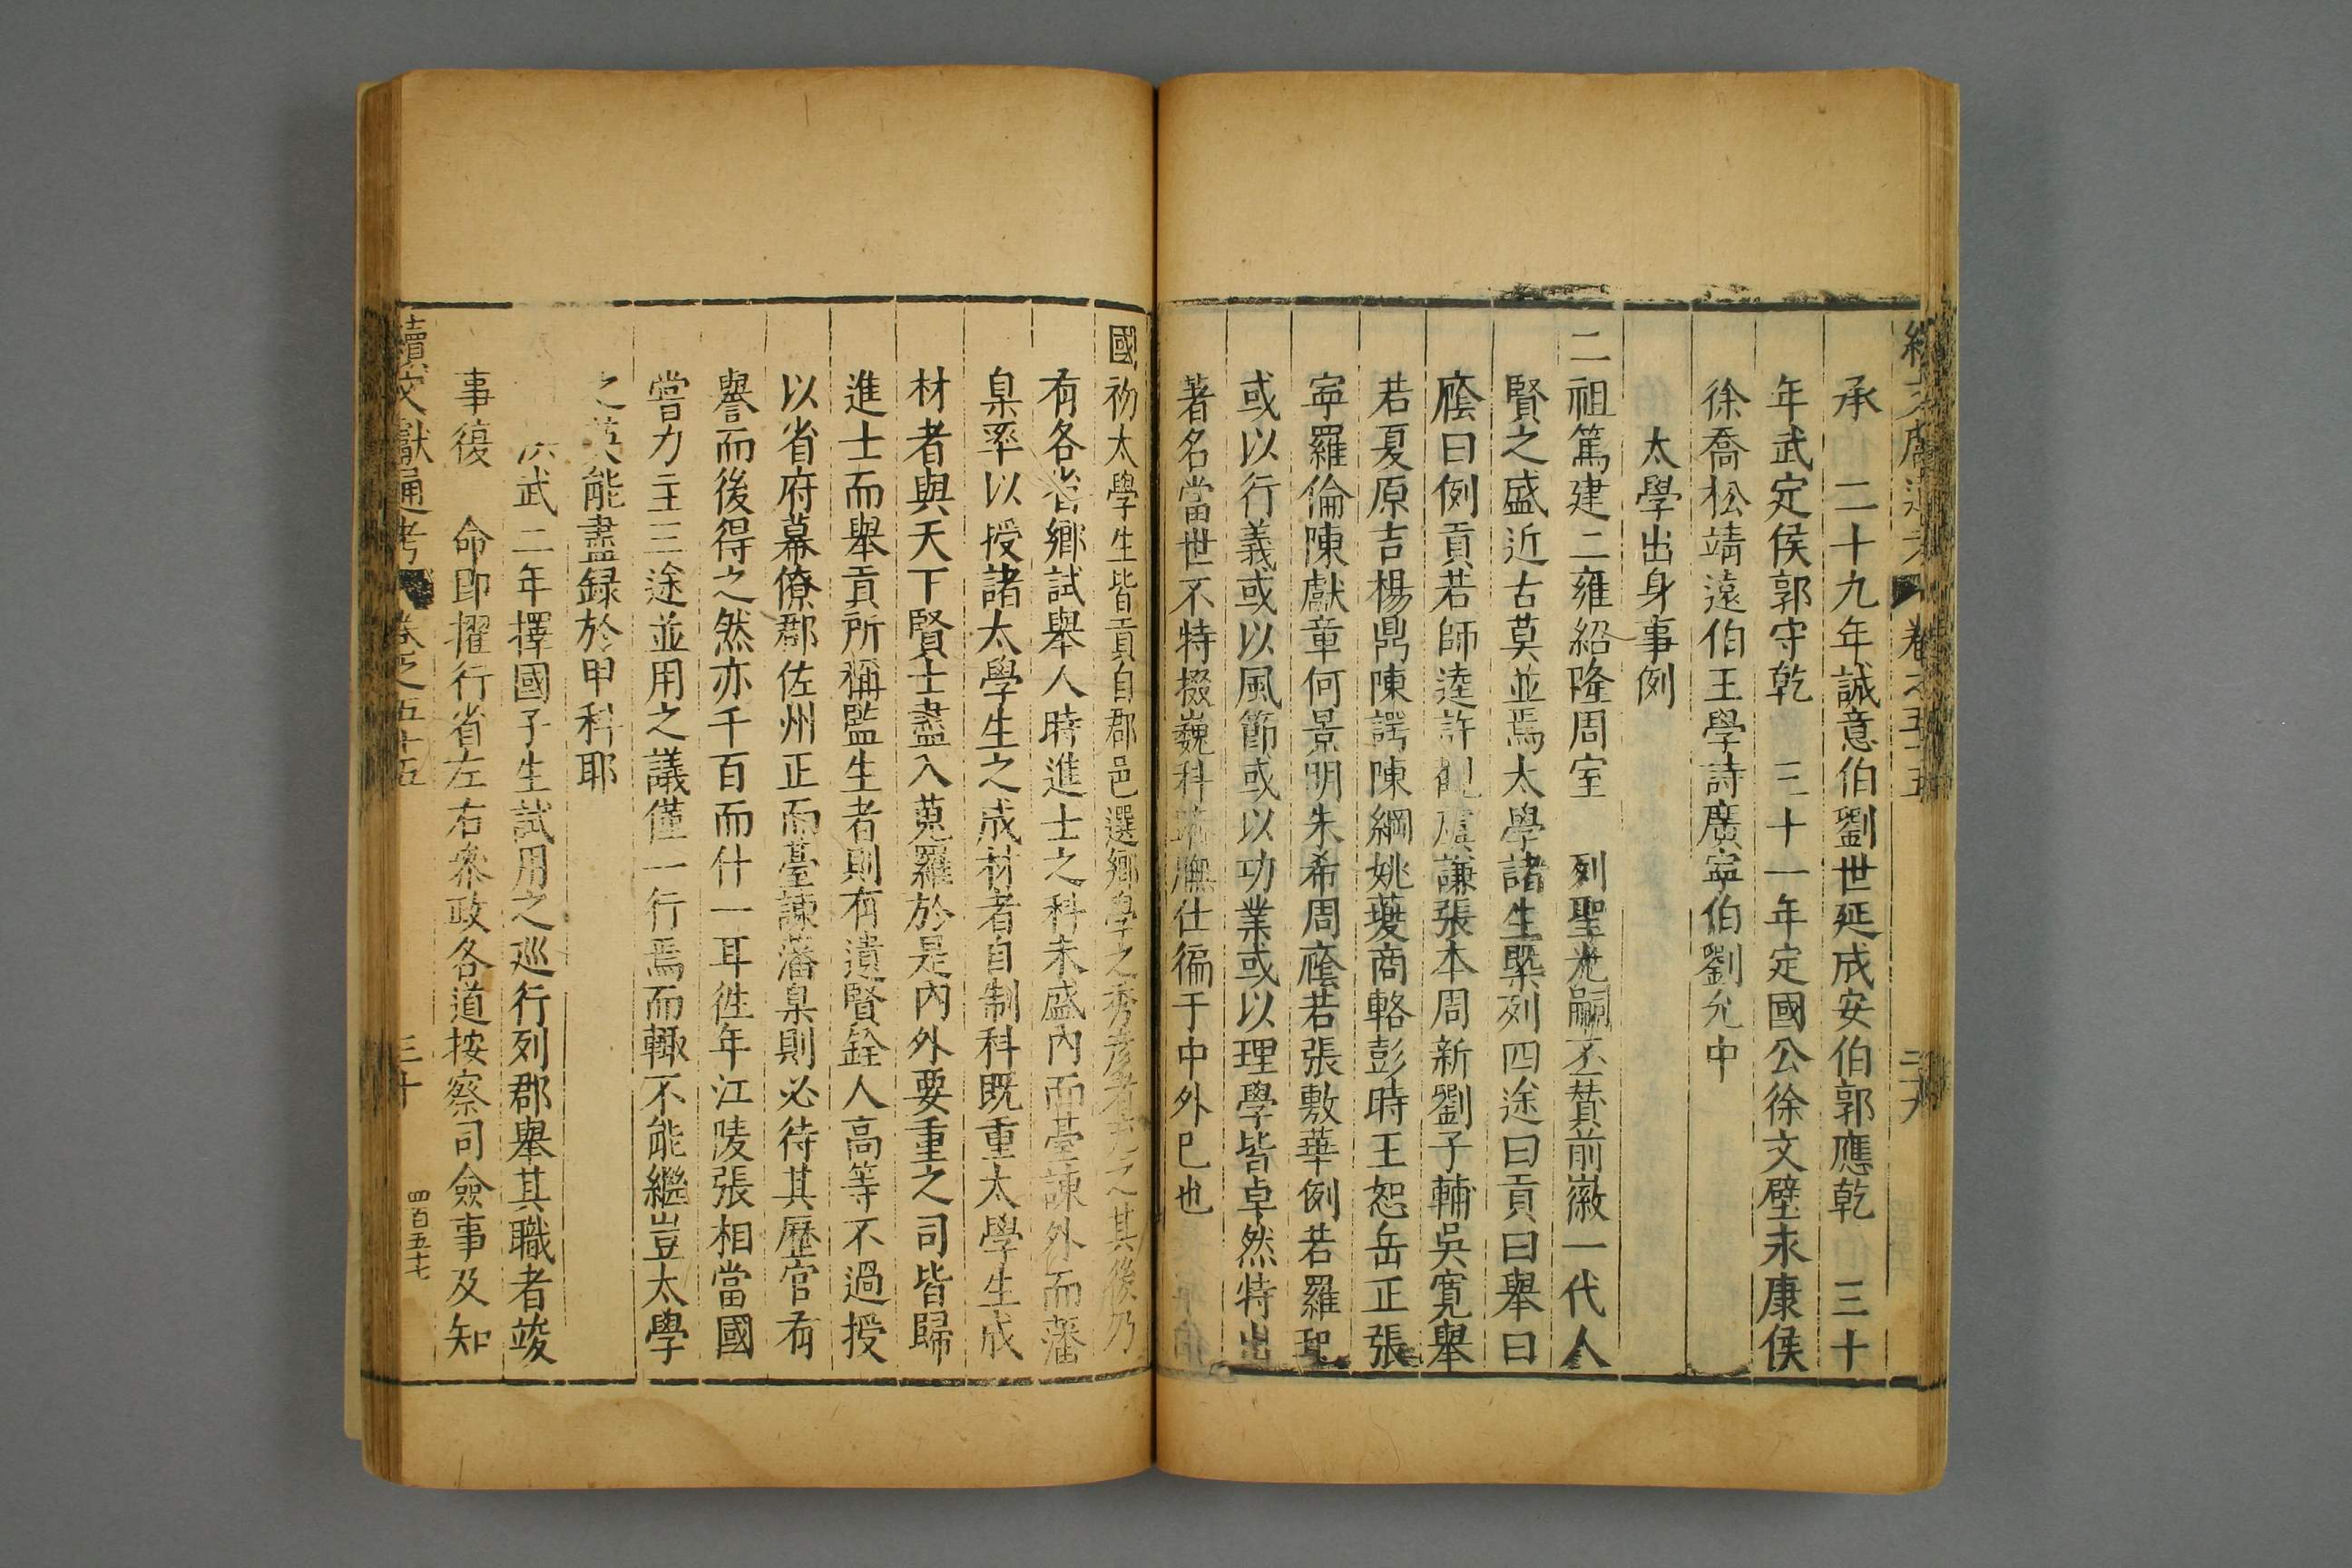 卷之五十五
承 二十九年誠意伯劉世延成安伯郭應乾 三十
年武定侯郭守乾 三十一年定國公徐文壁永康侯
徐喬松靖遠伯王學詩廣寧伯劉允中
太學出身事例
二祖篤建二雍紹隆周室 列聖光嗣丕贊前徽一代人
賢之盛近古莫並焉太學諸生槩列四途曰貢曰舉曰
廕曰例貢若師逵許觀謙張本周新劉子輔吳寬舉
若夏原吉楊鼎陳諤陳綱姚夔商輅彭時王恕岳正張
寧羅倫陳獻章何景明朱希周廕若張敷華例若羅玘
或以行義或以風節或以功業或以理學皆卓然特出
著名當世不特掇巍科膴仕徧于中外已也
國初太學生皆貢自郡邑選鄉學之秀彥者充之其後乃
有各省鄉試舉人時進士之科未盛內而臺諫外而藩
臬率以授諸太學生之成材者自制科既重太學生成
材者與天下賢士盡入蒐羅於是內外要重之司皆歸
進士而舉貢所稱監生者則有遺賢銓人高等不過授
以省府幕僚郡佐州正而臺諫藩臬則必待其歷官有
譽而後得之然亦千百而什一耳徃年江陵張相當國
嘗力主三途並用之議僅一行焉而輙不能繼豈太學
之英能盡録於甲科耶
洪武二年擇國子生試用之巡行列郡舉其職者竣
事復 命即擢行省左右叅政各道按察司僉事及知
續文獻通考 卷之五十五 三十 四百五七